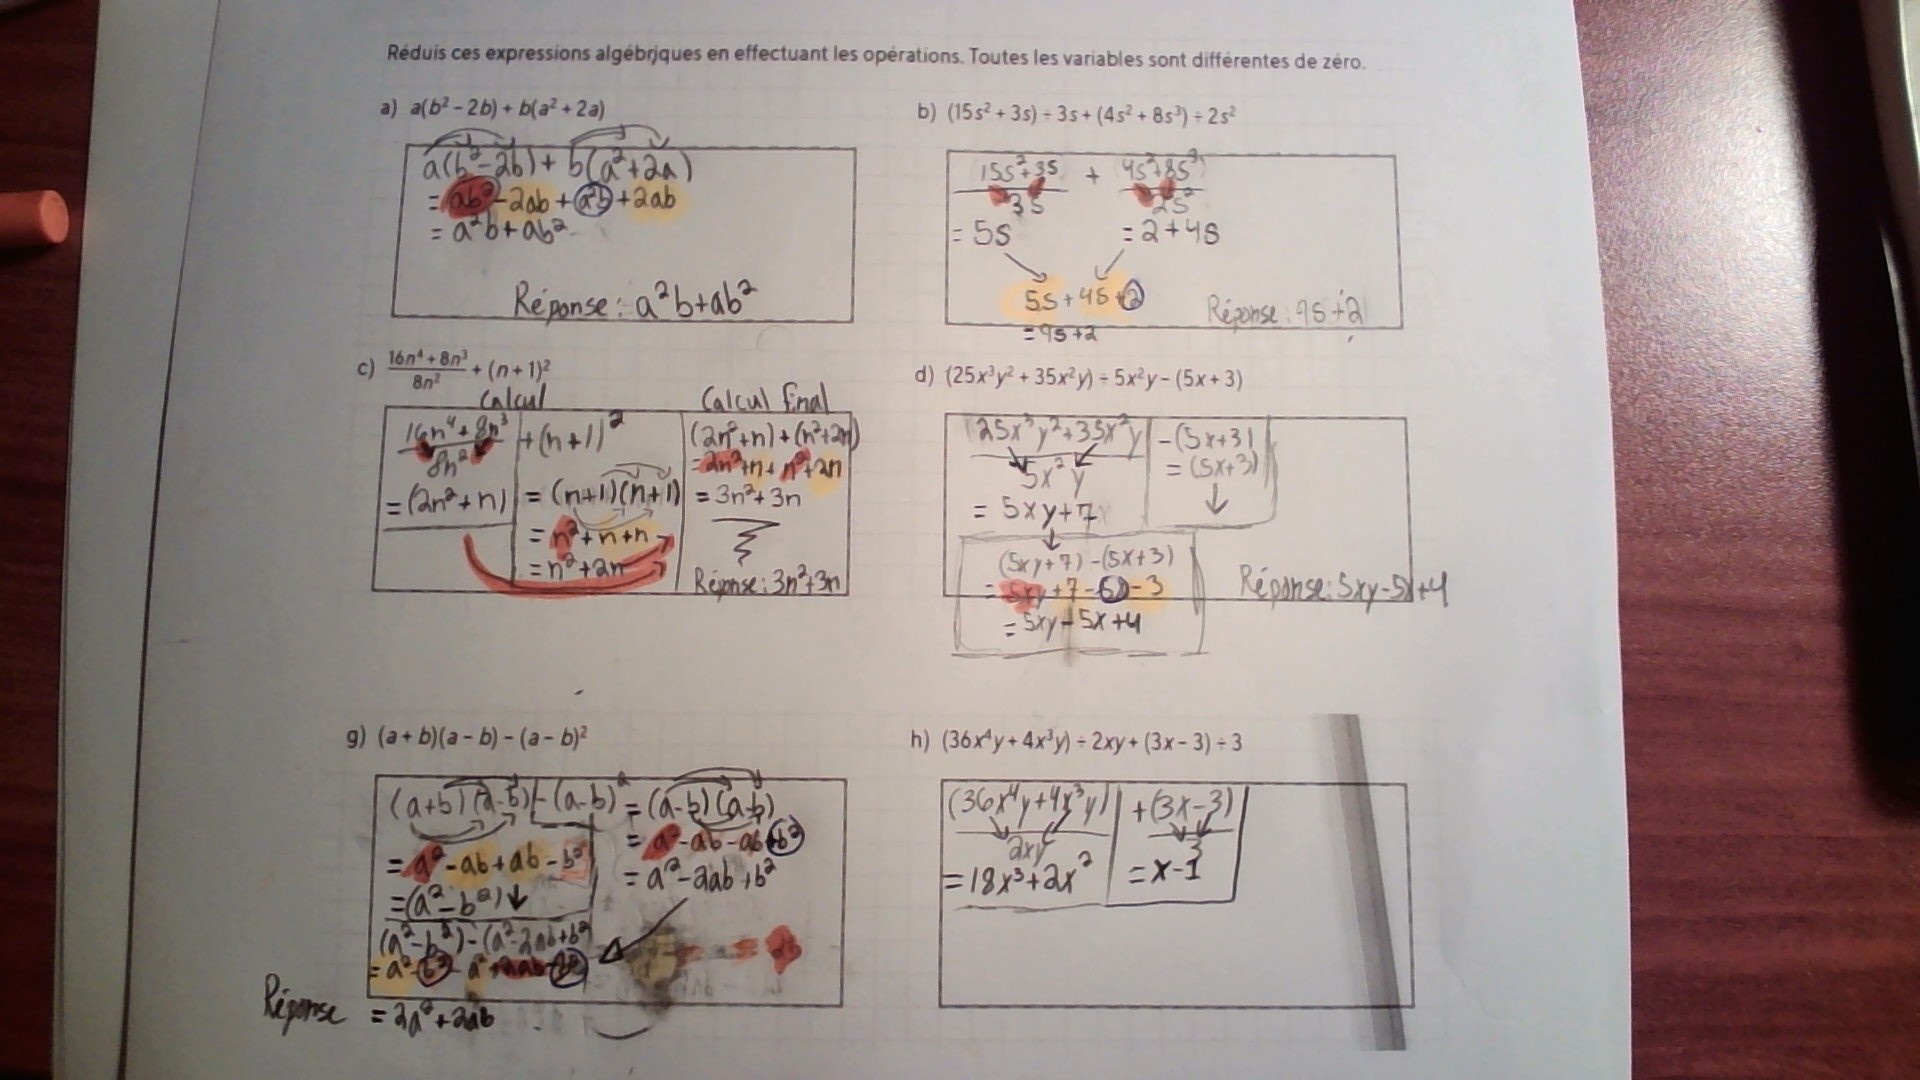 Réduis ces expressions algébriques en effectuant les opérations. Toutes les variables sont différentes de zéro.
a) a(b² - 2b) + b(a² + 2a)
a(b²-2b)+ b(a²+2a)
= ab²-2ab+a²b+2ab
= a²b+ab²
Réponse: a²b+ab²
b) (15s² + 3s) ÷ 3s + (4s² + 8s³) ÷ 2s²
15s²+3s + 4s²+8s³
3s 2s²
= 5s = 2+4s
5s+4s+2
= 9s+2
Réponse: 9s+2
c) 16n⁴ + 8n³ / 8n² + (n + 1)²
Calcul
16n⁴+8n³ +(n+1)²
8n²
= (2n²+n) = (n+1)(n+1)
= n²+n+n
= n²+2n
Calcul final
(2n²+n)+(n²+2n)
= 2n²+n+n²+2n
= 3n²+3n
Réponse: 3n²+3n
d) (25x³y² + 35x²y) ÷ 5x²y - (5x + 3)
(25x³y²+35x²y -(5x+3)
5x²y = (5x+3)
= 5xy+7
(5xy+7)-(5x+3)
= 5xy+7-5x-3
= 5xy-5x+4
Réponse: 5xy-5x+4
g) (a + b)(a - b) - (a - b)²
(a+b)(a-b)-(a-b)² = (a-b)(a-b)
= a²-ab+ab-b² = a²-ab-ab+b²
=(a²-b²) = a²-2ab+b²
(a²-b²)-(a²-2ab+b²
= a²-b²-a²+2ab-b²
Réponse = 2a²+2ab
h) (36x⁴y + 4x³y) ÷ 2xy + (3x - 3) ÷ 3
(36x⁴y+4x³y) +(3x-3)
2xy 3
= 18x³+2x² = x-1